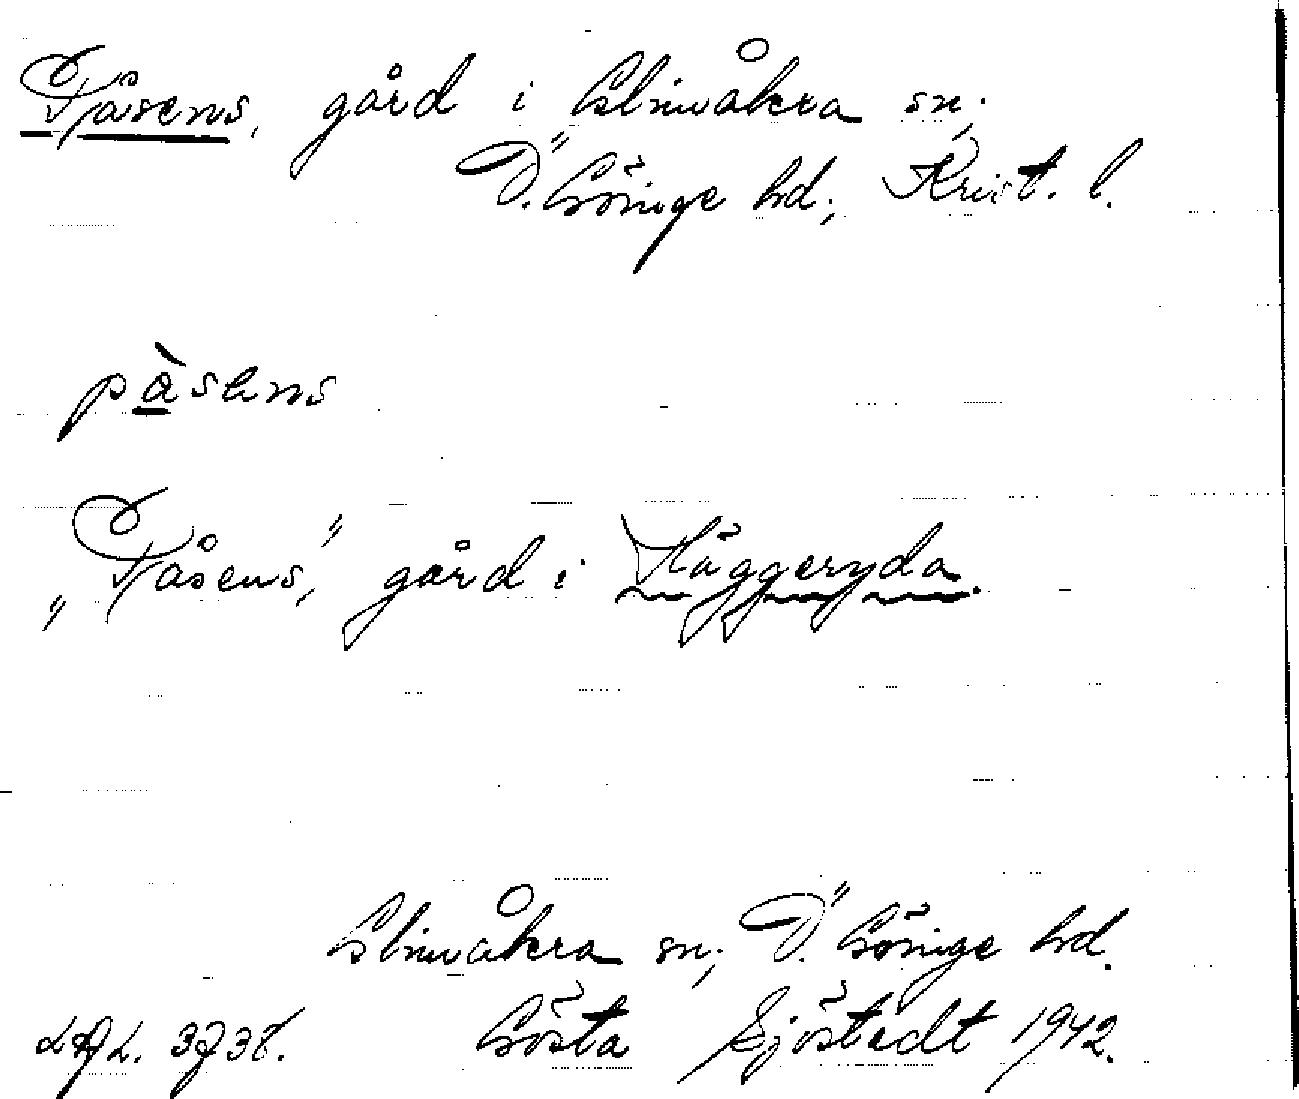 Påsens, gård i Glimåkra sn,
Ö. Göinge hd, Krist. l.
pàsens
"Påsens," gård i Häggeryda.
Glimåkra sn, Ö. Göinge hd.
Gösta Sjöstedt 1942.